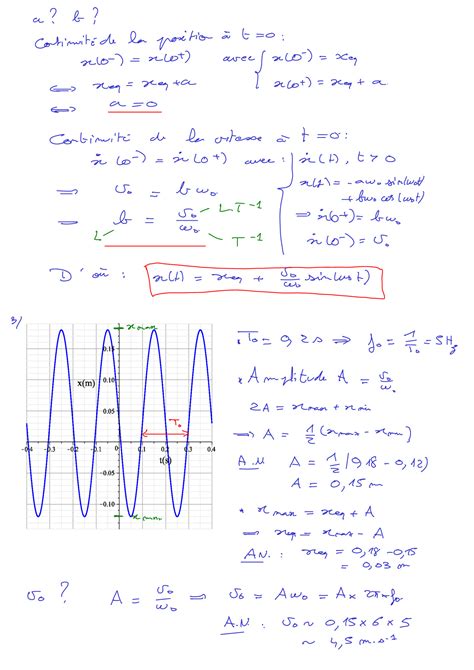 a? b?
Continuité de la position à t=0 :
x(0⁻) = x(0⁺) avec { x(0⁻) = xeq
⟺ xeq = xeq + a x(0⁺) = xeq + a
⟺ a = 0
Continuité de la vitesse à t = 0 :
ẋ(0⁻) = ẋ(0⁺) avec : ẋ(t), t > 0
ẋ(t) = -aω₀ sin(ω₀t)
+ bω₀ cos(ω₀t)
⟹ v₀ = bω₀
⟹ ẋ(0⁺) = bω₀
⟹ b = v₀/ω₀ L.T⁻¹
ẋ(0⁻) = v₀
L T⁻¹
D'où : x(t) = xeq + v₀/ω₀ sin(ω₀t)
3/
xmax
0.15
0.10
x(m)
0.05
T₀
-0.4 -0.3 -0.2 -0.1 0 0.1 0.2 0.3 0.4
t(s)
-0.05
-0.10
xmin
. T₀ = 0,2 s ⟹ f₀ = 1/T₀ = 5Hz
* Amplitude A = v₀/ω₀
2A = xmax + xmin
⟹ A = 1/2 (xmax - xmin)
A.N A = 1/2 (0,18 - 0,12)
A = 0,15 m
* xmax = xeq + A
⟹ xeq = xmax - A
A.N. : xeq = 0,18 - 0,15
= 0,03 m
v₀ ? A = v₀/ω₀ ⟹ v₀ = Aω₀ = A × 2πf₀
A.N. : v₀ ≈ 0,15 × 6 × 5
≈ 4,5 m.s⁻¹